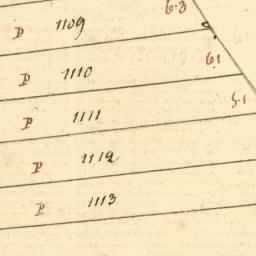 6.3
p 1109
6.1
p 1110
5.1
p 1111
p 1112
p 1113